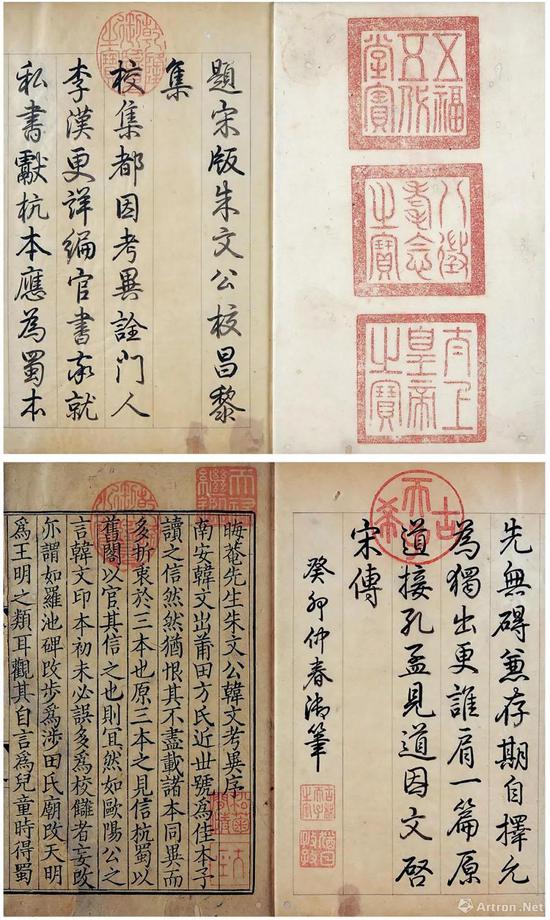 五福五代堂寶
八徵耄念之寶
太上皇帝之寶
乾隆御覽之寶
題宋版朱文公校昌黎
集
校集都因考異詮門人
李漢更詳編官書就
私書獻杭本應為蜀本
古希天子
先無碍兼存期自擇允
為獨出更誰肩一篇原
道接孔孟見道因文啓
宋傳
癸卯仲春御筆
天祿繼鑑
乾隆御覽之寶
晦菴先生朱文公韓文考異序
南安韓文出莆田方氏近世號爲佳本予
讀之信然然猶恨其不盡載諸本同異而
多折衷於三本也原三本之見信杭蜀以
舊閣以官其信之也則冝然如歐陽公之
言韓文印本初未必誤多爲校讎者妄改
亦謂如羅池碑改步爲涉田氏廟改天明
爲王明之類耳觀其自言爲兒童時得蜀
Artron.Net